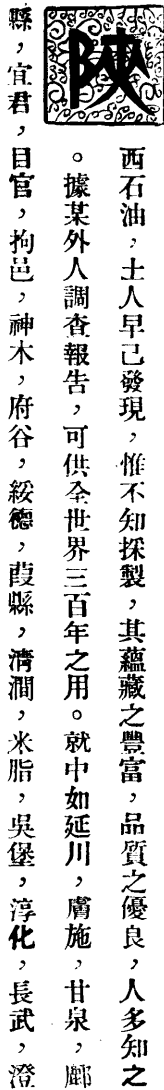 陝西石油，土人早已發現，惟不知採製，其蘊藏之豐富，品質之優良，人多知之
。據某外人調查報告，可供全世界三百年之用。就中如延川，膚施，甘泉，鄜
縣，宜君，目官，拘邑，神木，府谷，綏德，葭縣，淸澗，米脂，吳堡，淳化，長武，澄